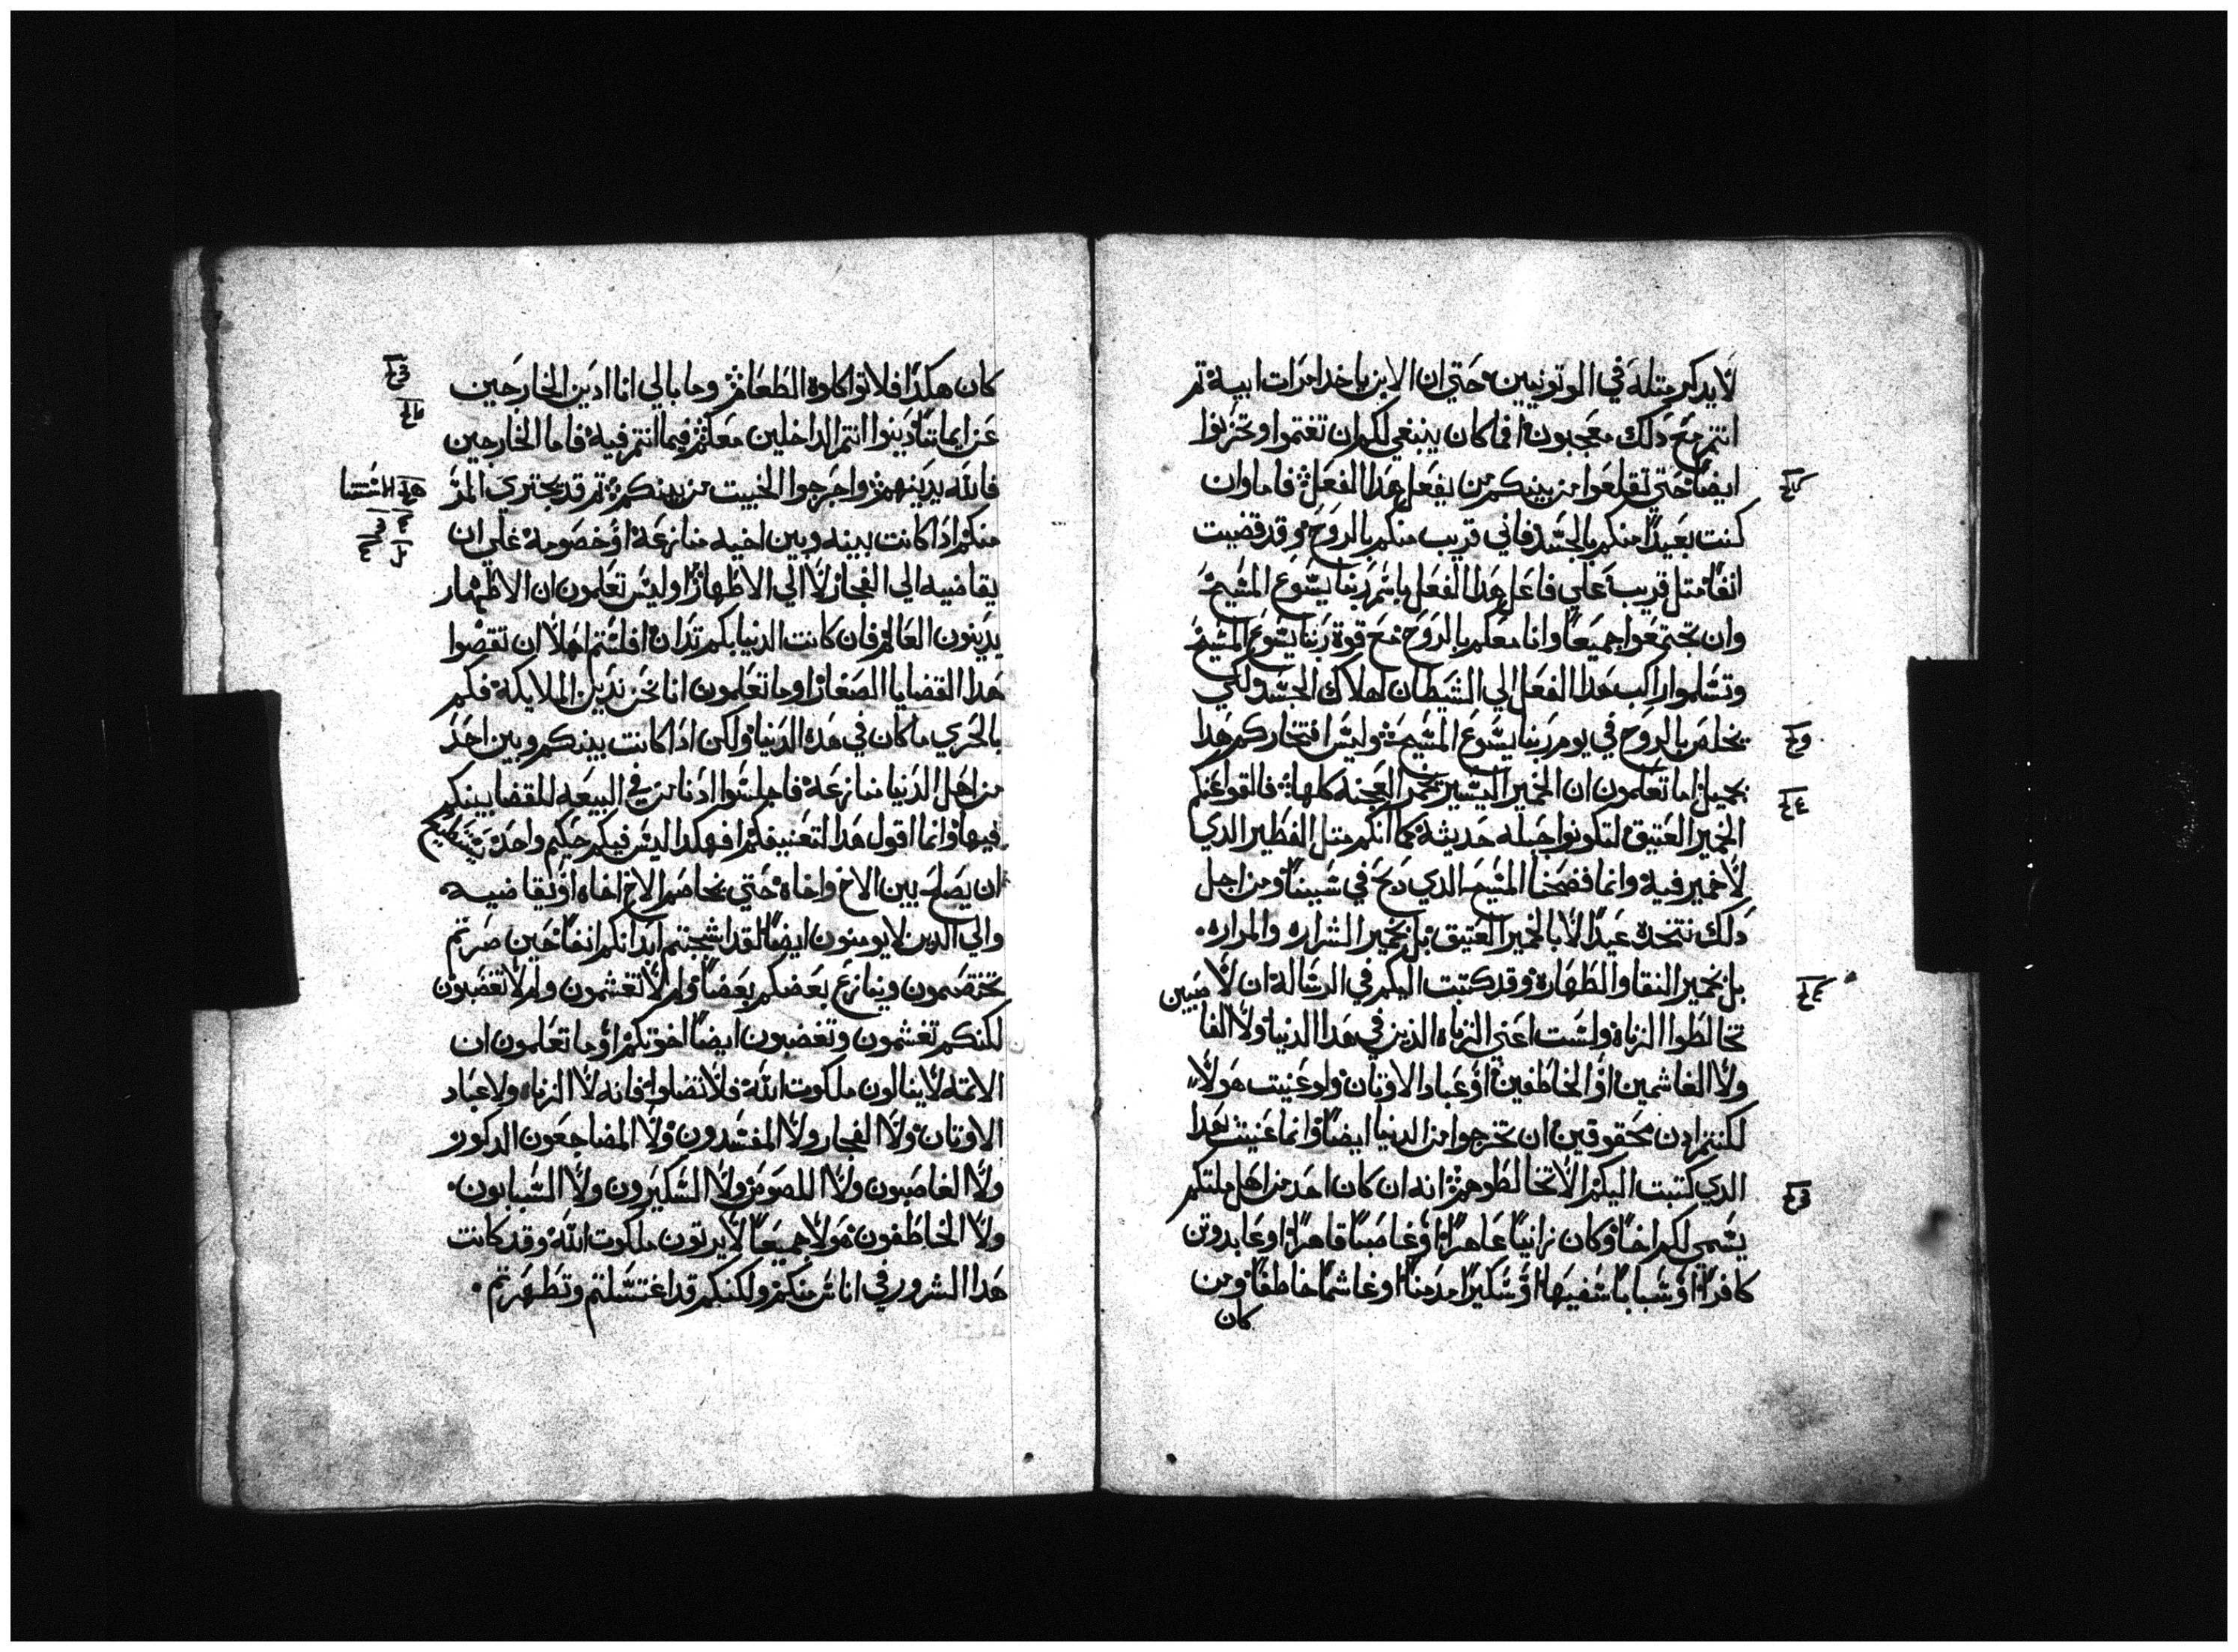 لا يدكر مثله في الوتونيين وحتي ان الابن ياخد امرات ابيه ثم
انتم مع دلك معجبون افما كان ينبغي لكم ان تغتموا وتحزنوا
ايضا حتي تقلعوا من بينكم من يفعل هدا الفعل فاما وان
كنت بعيدا منكم بالجسد فاني قريب منكم بالروح وقد قضيت
انفا متل قريب علي فاعل هدا الفعل باسم ربنا يسوع المسيح
وان تجتمعوا جميعا وانا معكم بالروح مع قوة ربنا يسوع المسيح
وتسلموا راكب هدا الفعل الي الشيطان لهلاك الجسد ولكي
يخلص بالروح في يوم ربنا يسوع المسيح وليس افتخاركم هدا
بجميل اما تعلمون ان الخمير اليسير يخمر العجنه كلها فالقوا عنكم
الخمير العتيق لتكونوا جبله حديثة كما انكم متل الفطير الدي
لا خمير فيه وانما فصحنا المسيح الدي دبح في سببنا ومن اجل
دلك نتخده عيدا لا بالخمير العتيق بل بخمير الشراره والمراره
بل بخمير النقا والطهارة وقد كتبت اليكم في الرسالة ان لا
تخالطوا الزناة ولست اعني الزناه الدين في هدا الدنيا ولا
ولا الغاشمين او الخاطفين او عباد الاوتان ولو عنيت هولاء
لكنتم ادن محقوقين ان تخرجوا من الدنيا ايضا وانما عنيت بهدا
الدي كتبت اليكم الا تخالطوهم انه ان كان احد من اهل ملتكم
يسمي لكم اخا وكان زانيا عاهرا او غاصبا قاهرا او عابد وتن
كافرا او سبابا سفيها او سكيرا مدمنا او غاشما خاطفا ومن
كان
كان هكدا فلا تواكلوه الطعام وما بالي انا ادين الخارجين
عن ايماننا دينوا انتم الداخلين معكم فيما انتم فيه فاما الخارجين
فالله يدينهم واخرجوا الخبيت من بينكم تم قد يجتري المر
منكم ادا كانت بينه وبين اخيه منازعة او خصومة علي ان
يقاضيه الي الفجار لا الي الاطهار اوليس تعلمون ان الاطهار
يدينون العالم فان كانت الدنيا بكم تدان افلستم اهلا ان تقضوا
هدا القضايا الصغار اوما تعلمون انا نحن ندين الملايكة فكم
بالحري ما كان في هده الدنيا ولكن ادا كانت بينكم وبين احد
من اهل الدنيا منازعة فاجلسوا ادنا من في البيعه للقضا بينكم
فيها وانما اقول هدا لتعنيفكم افهكدا ليس فيكم حكيم واحد يستطيع
ان يصلح بين الاخ واخاه حتي يخاصم الاخ اخاه او يقاضيه
والي الدين لا يومنون ايضا لقد اشجبتم ابدانكم انفا حين صرتم
تختصمون وينازع بعضكم بعضا ولم لا تغشمون ولم لا تغضبون
لكنكم تغشمون وتغضبون ايضا اخوتكم اوما تعلمون ان
الاتمه لا ينالون ملكوت الله فلا تضلوا فانه لا الزناه ولا عباد
الاوتان ولا الفجار ولا المفسدون ولا المضاجعون الدكور
ولا الغاصبون ولا اللصوص ولا السكيرون ولا السبابون
ولا الخاطفون هولا جميعا لا يرتون ملكوت الله وقد كانت
هدا الشرور في اناس منكم ولكنكم قد اغتسلتم وتطهرتم